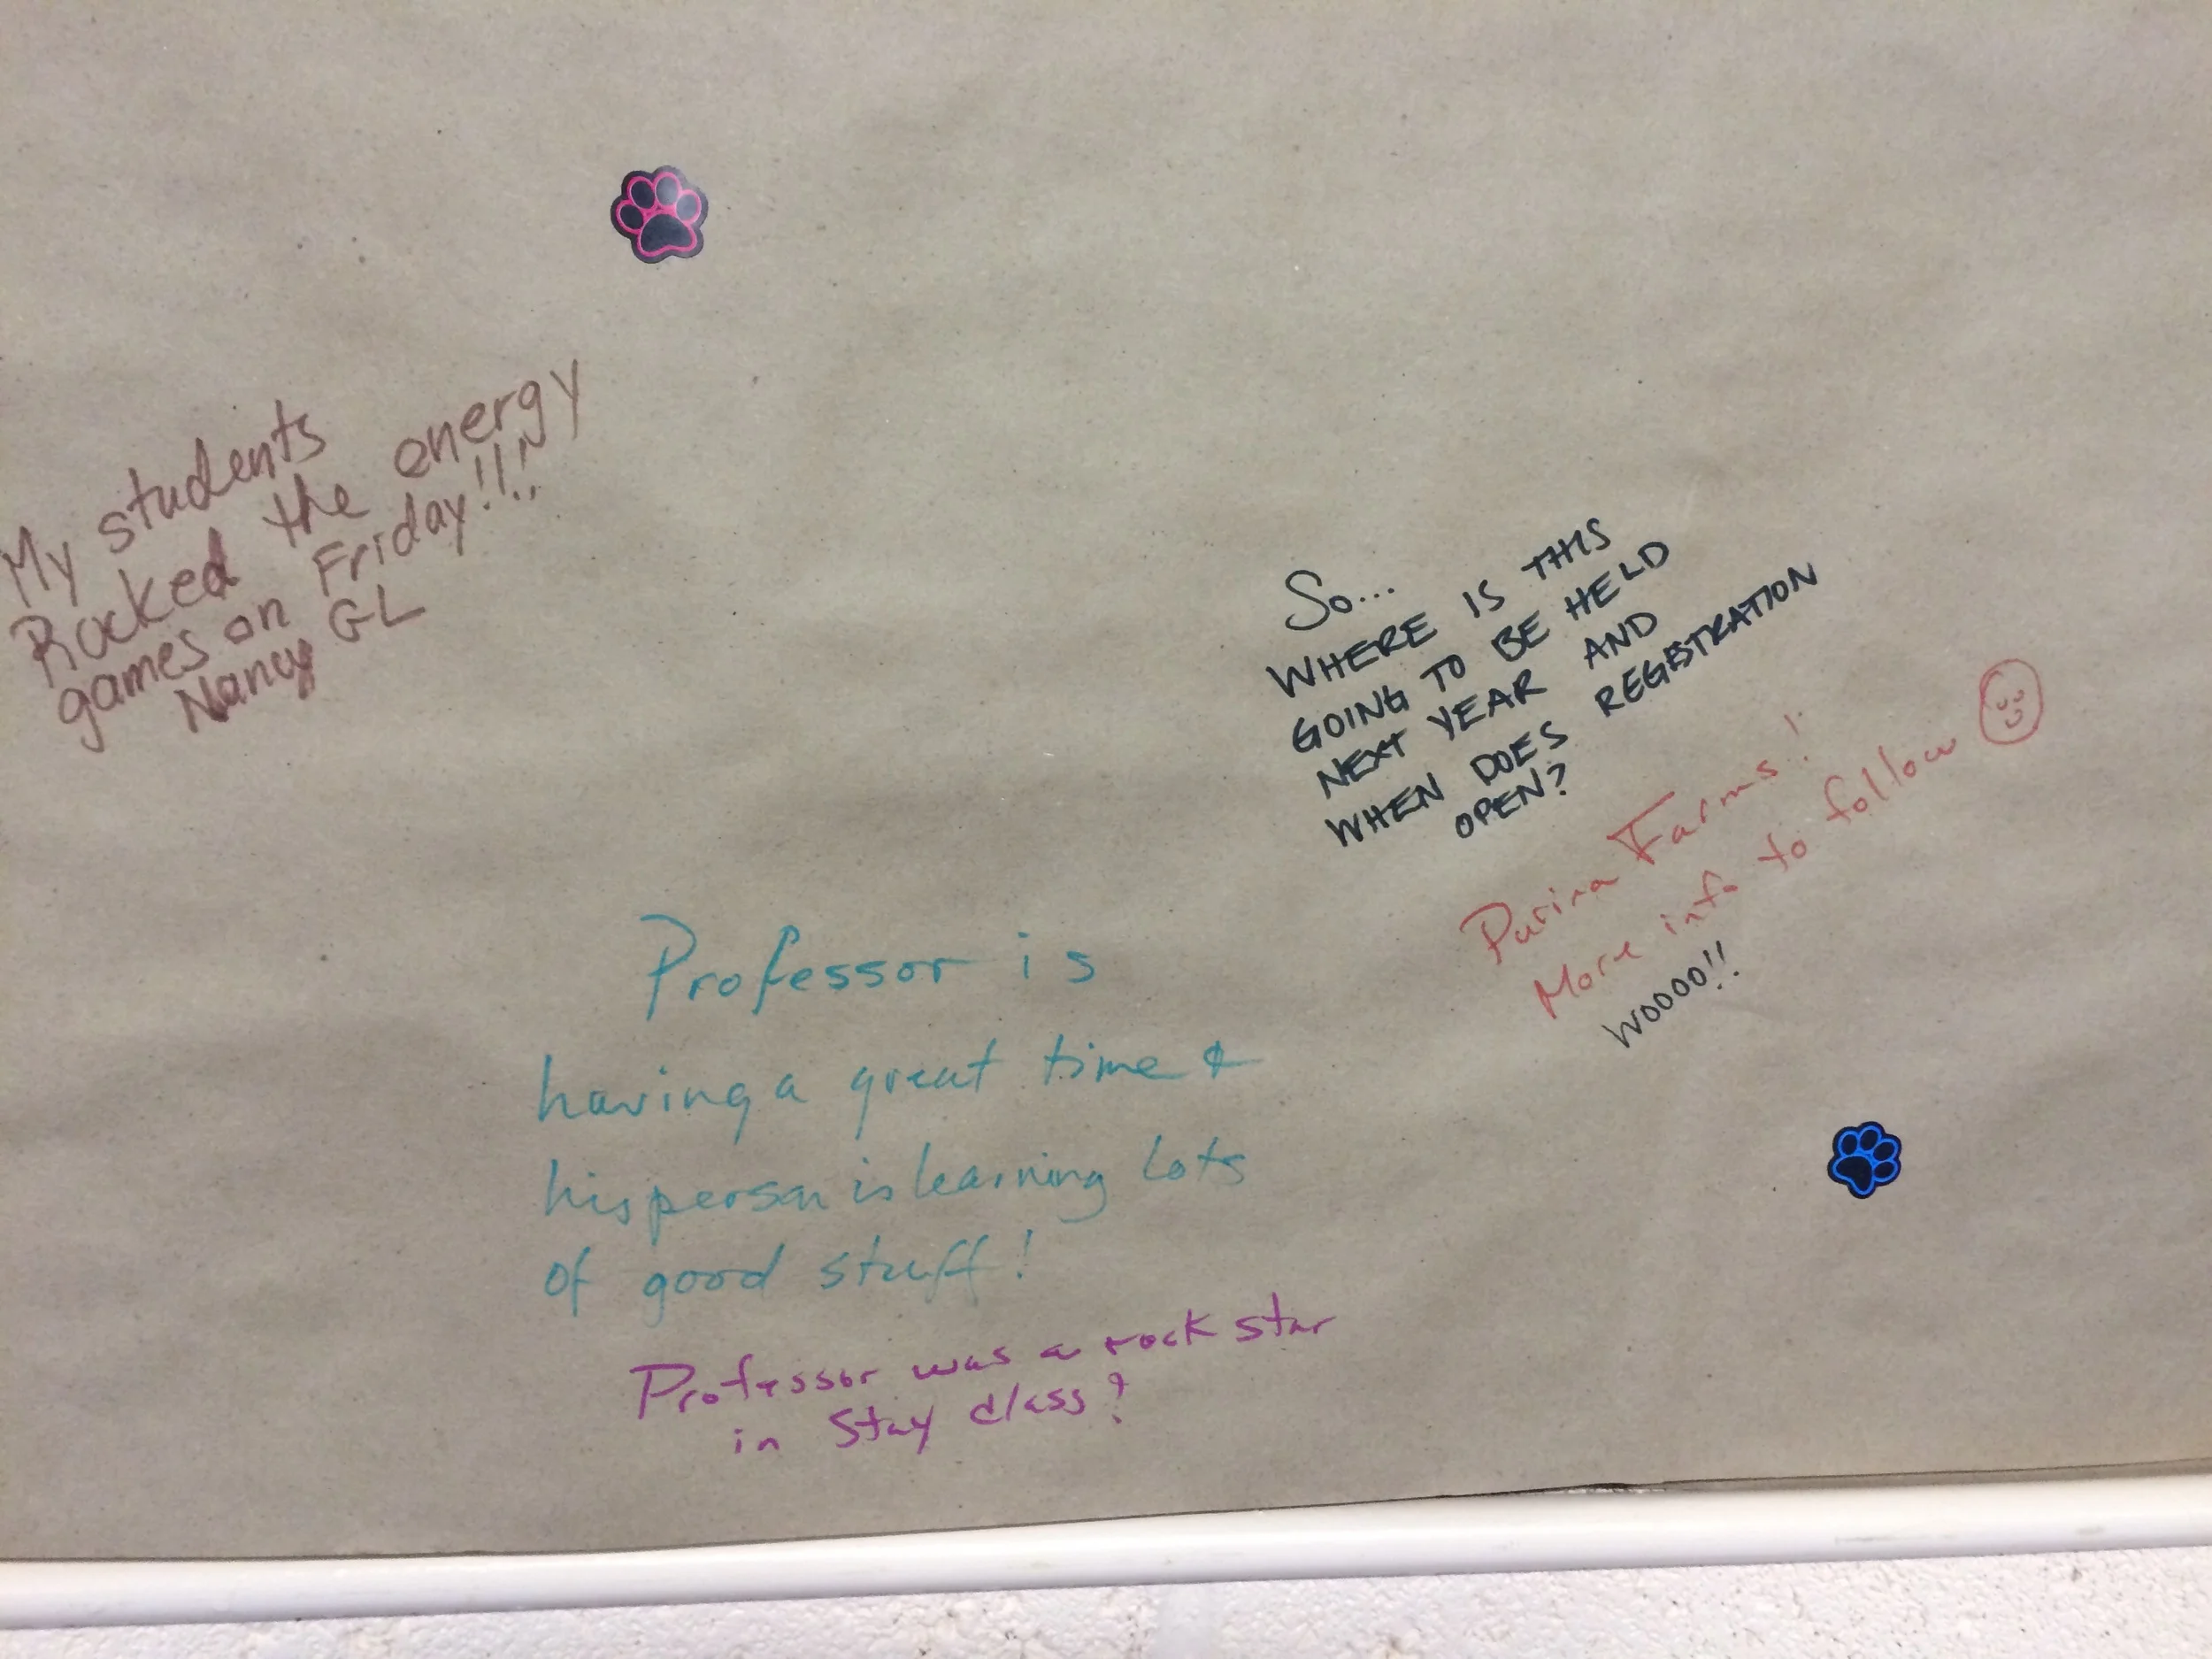 My students
Rocked the energy
games on Friday!!!
Nancy GL
So...
WHERE IS THIS
GOING TO BE HELD
NEXT YEAR AND
WHEN DOES REGISTRATION
OPEN?
Purina Farms!
More info to follow
WOOOO!!
Professor is
having a great time &
his person is learning lots
of good stuff!
Professor was a rock star
in Stay class!